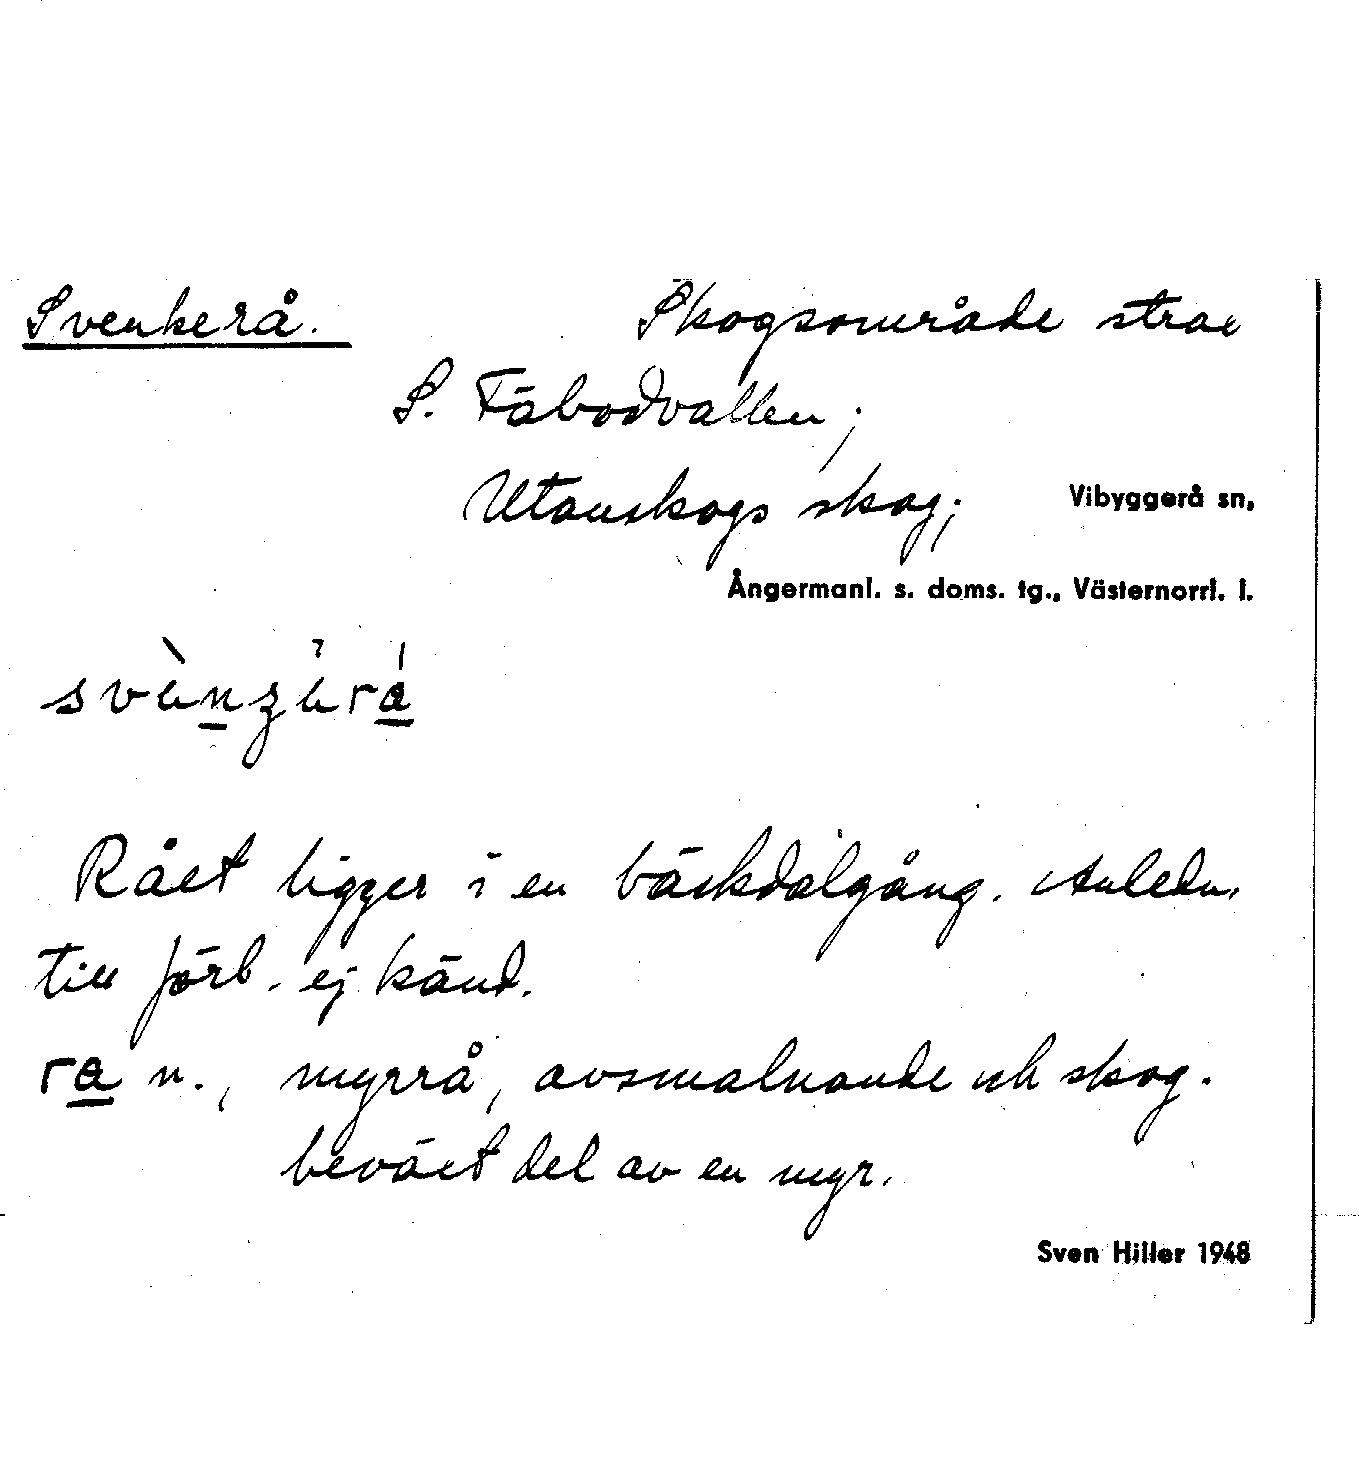 Svenkerå. Skogsområde strax
S. Fäbodvallen;
Utanskogs skog; Vibyggerå sn,
Ångermanl. s. doms. tg., Västernorrl. l.
Rået ligger i en bäckdalgång. Anledn.
till förb. ej känd.
ra n., myrrå, avsmalnande och skog-
beväxt del av en myr.
Sven Hiller 1948